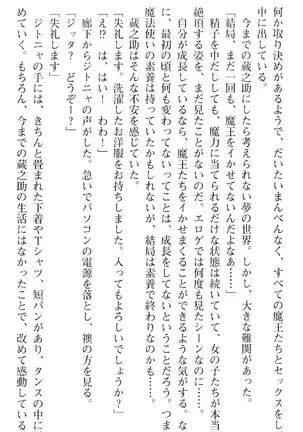 何か取り決めがあるようで、だいたいまんべんなく、すべての魔王たちとセックスをし、
中に出している。
今までの蔵之助にしたら考えられない夢の世界。しかし、大きな難関があった。
「結局、まだ一回も、魔王をイカせてないんだよなぁ……」
精子を中だししても、魔力に当てられるだけな状態は続いていて、女の子たちが本当に
絶頂する姿を、まだ見たことがないのだ。エロゲでは何度も見たシーンなのに……。
自分が成長しているなら、魔王たちをイカせまくることができるような気がする。なの
に、最初の頃と何も変わってないってことは、成長をしてないということだろう。つまり
魔法使いの素養は持っていたかもしれないが、結局は素養で終わりなのかも……。
蔵之助はそんな不安を感じていた。
「失礼します。洗濯したお洋服をお持ちしました。入ってもよろしいでしょうか？」
「え!?　は、はい！　わわ！」
廊下からジトニャの声がした。急いでパソコンの電源を落とし、襖の方を見る。
「ジッタ？　どうぞー？」
「失礼します」
ジトニャの手には、きちんと畳まれた下着やTシャツ、短パンがあり、タンスの中に収
めていく。もちろん、今までの蔵之助の生活にはなかったことで、改めて感動している